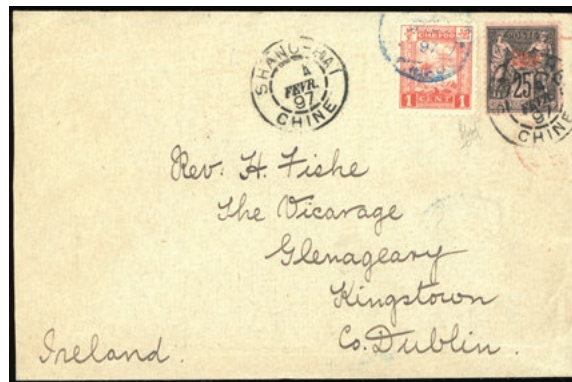 SHANG-HAI
4
FEVR.
97
CHINE
CHEFOO
97
1 CENT 1
POSTE
25
97
CHINE
Rev. H. Fishe
The Vicarage
Glenageary
Kingstown
Co. Dublin.
Ireland.